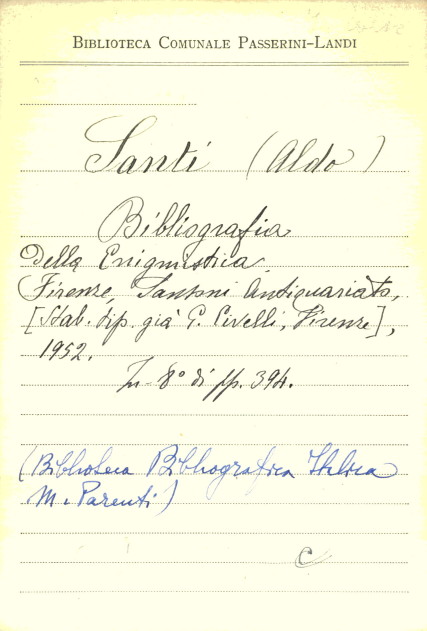 BIBLIOTECA COMUNALE PASSERINI-LANDI
Santi (Aldo)
Bibliografia
della Enigmistica.
Firenze, Sansoni Antiquariato,
[Stab. tip. già G. Civelli, Firenze],
1952.
In-8° di pp. 394.
(Biblioteca Bibliografica Italica
M. Parenti)
C